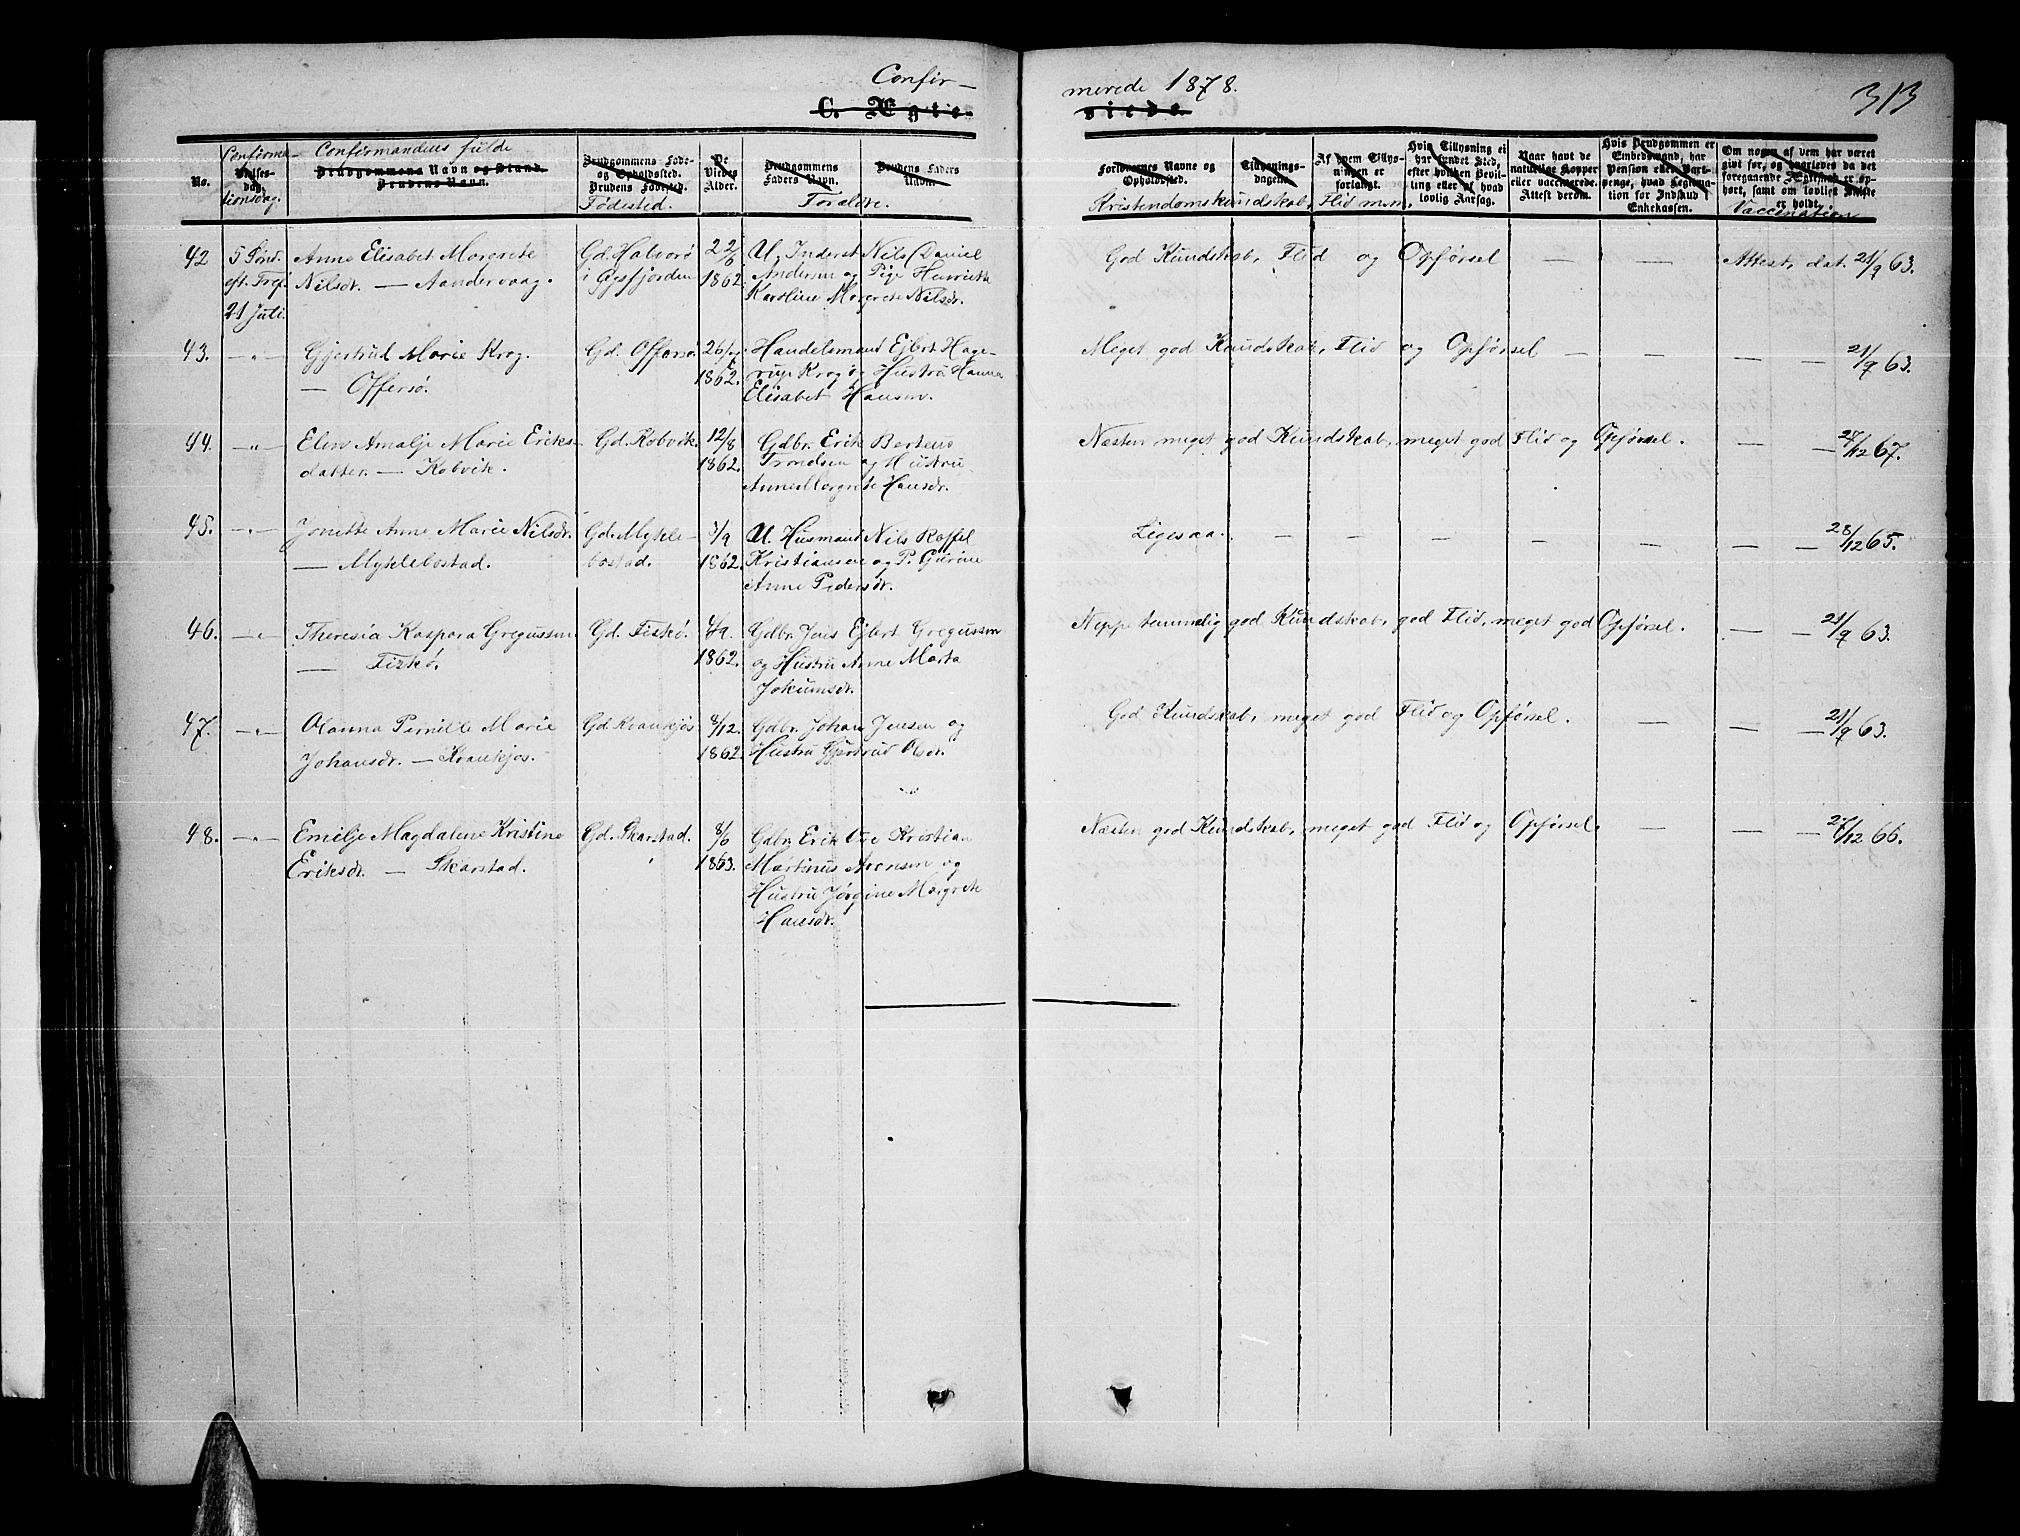 Confir-
C. Ægte-
merede 1878.
viede.
313
No.
Confirma-
Vielses-
dag.
tionsdag.
Confirmandens fulde
Brudgommens Navn og Stand.
Brudens Navn.
Brudgommens Føde-
og Opholdssted.
Brudens Fødested.
Fødested.
De
Viedes
Alder.
Brudgommens
Faders Navn.
Brudens Faders
Navn.
Forældre.
Forlovernes Navne og
Opholdssted.
Kristendomskundskab,
Tillysnings-
dagene.
Af hvem Tillys-
ningen er
forlangt.
Flid m.m.
Hvis Tillysning ei
har fundet Sted,
efter hvilken Bevil-
ling eller af hvad
lovlig Aarsag.
Naar havt de
naturlige Kopper
eller vaccinerede.
Attest derom.
Hvis Brudgommen er
Embedsmand, har
Pension eller Vart-
penge, hvad Legitima-
tion for Indskud i
Enkekassen.
Om nogen af dem har været
givt før, og angaaende da det
foregaaende Ægteskab er op-
hørt, samt om lovligt Skifte
er holdt.
Vaccination
42 5 Sønd. Anne Elisabet Margrete Gd. Halvarø 22/6 U. Inderst Nils Daniel God Kundskab, Flid og Opførsel — — Attest, dat. 21/9 63.
eft. Tref. Nilsdr. — Aandervaag. i Øxfjorden 1862. Andersen og Pige Henriette
21 Juli. Karoline Margrete Nilsdr.
43. —"— Gjertrud Marie Krog. Gd. Offersø 26/7 Handelsmand Ejlert Hage- Meget god Kundskab, Flid og Opførsel — — — 21/9 63.
— Offersø. 1862. rup Krog og Hustru Hanna
Elisabet Hansen.
44. —"— Elen Amalje Marie Eriks- Gd. Kobvik. 12/8 Gdbr. Erik Berteus Næsten meget god Kundskab, meget god Flid og Opførsel. — — 27/12 67.
datter. — Kobvik. 1862. Trondsen og Hustru
Anne Margrete Hansdr.
45. —"— Jonette Anne Marie Nilsdr. Gd. Mykle- 7/9 U. Husmand Nils Roffel Ligesaa. — — — — — — 28/12 65.
— Myklebostad. bostad. 1862. Kristiansen og P. Gurine
Anne Pedersdr.
46. —"— Theresia Kaspara Gregussen Gd. Fiskø. 4/9. Gdbr. Jens Ejlert Gregussen Neppe temmelig god Kundskab, god Flid, meget god Opførsel. — — 21/9 63.
— Fiskø. 1862. og Hustru Anne Marta
Jokumsdr.
47. —"— Olanna Pernille Marie Gd. Kvankjos 8/12. Gdbr. Johan Jensen og God Kundskab, meget god Flid og Opførsel. — — — 21/9 63.
Johansdr. — Kvankjos. 1862. Hustru Gjertrud Olsdr.
48. —"— Emilje Magdalene Kristine Gd. Skarstad. 8/6 Gdbr. Erik Ove Kristian Næsten god Kundskab, meget god Flid og Opførsel. — — — 27/12 66.
Eriksdr. — Skarstad. 1863. Martinus Arensen og
Hustru Jørgine Margrete
Hansdr.